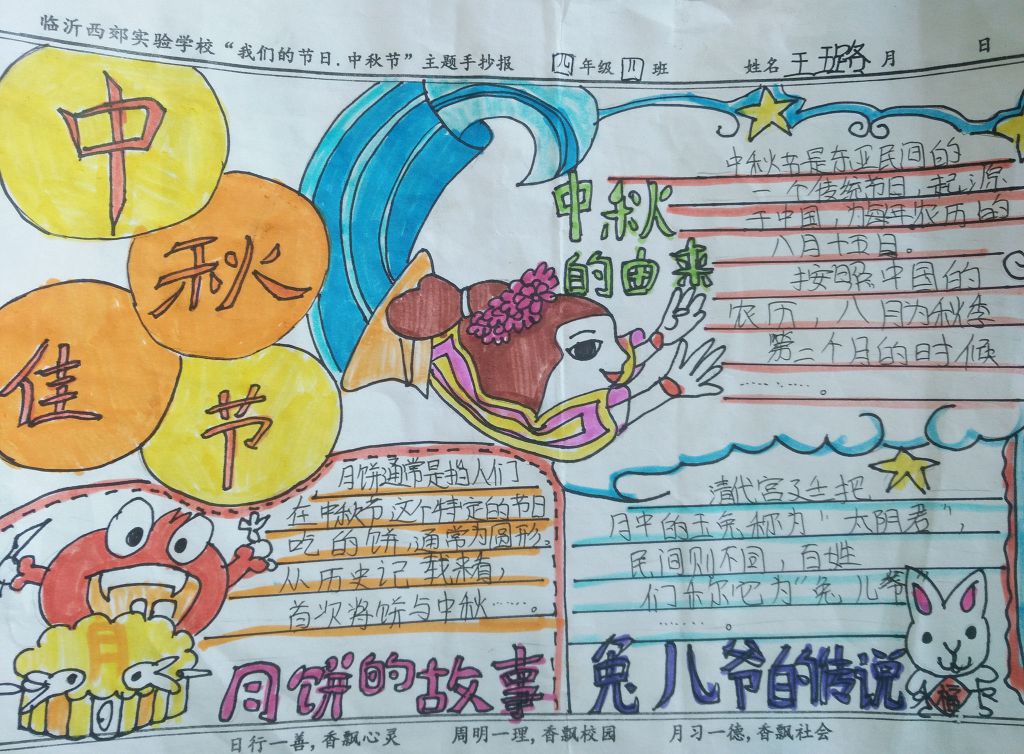 临沂西郊实验学校“我们的节日.中秋节”主题手抄报 四年级 四 班 姓名 王珺路 月 日
中
秋
佳
节
中秋
的由来
中秋节是东亚民间的
一个传统节日，起源
于中国，为每年农历的
八月十五日。
按照中国的
农历，八月为秋季
第二个月的时候
……。
月饼通常是指人们
在中秋节这个特定的节日
吃的饼，通常为圆形.
从历史记载来看，
首次将饼与中秋……。
月
月饼的故事
清代宫廷把
月中的玉兔称为“太阴君”，
民间则不同，百姓
们尔它为“兔儿爷
……。
兔儿爷的传说
福
日行一善,香飘心灵 周明一理,香飘校园 月习一德,香飘社会